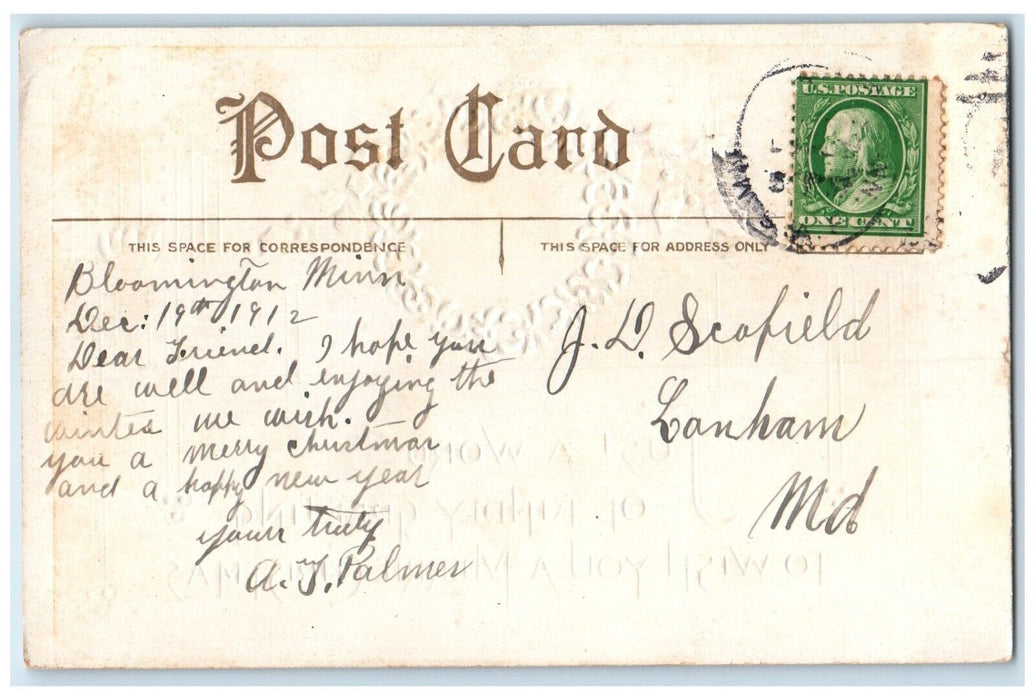 Post Card
U.S. POSTAGE
ONE CENT
THIS SPACE FOR CORRESPONDENCE
THIS SPACE FOR ADDRESS ONLY
Bloomington Minn
Dec: 19th 1912
Dear Friend. I hope you
are well and enjoying the
winter we wish.
you a merry christmas
and a happy new year
yours truly
A. F. Palmer
J. D. Scofield
Lanham
Md